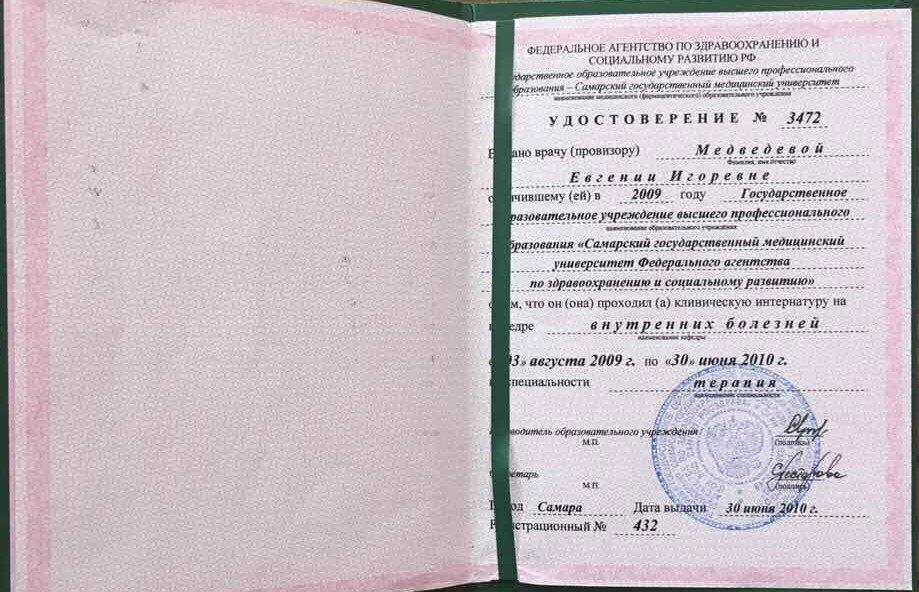 ФЕДЕРАЛЬНОЕ АГЕНТСТВО ПО ЗДРАВООХРАНЕНИЮ И
СОЦИАЛЬНОМУ РАЗВИТИЮ РФ
ударственное образовательное учреждение высшего профессионального
бразования – Самарский государственный медицинский университет
наименование медицинского (фармацевтического) образовательного учреждения
УДОСТОВЕРЕНИЕ № 3472
ано врачу (провизору) Медведевой
Фамилия, имя отчество
Евгении Игоревне
чившему (ей) в 2009 году Государственное
разовательное учреждение высшего профессионального
наименование образовательного учреждения
бразования «Самарский государственный медицинский
университет Федерального агентства
по здравоохранению и социальному развитию»
м, что он (она) проходил (а) клиническую интернатуру на
едре внутренних болезней
наименование кафедры
03» августа 2009 г. по «30» июня 2010 г.
специальности терапия
наименование специальности
водитель образовательного учреждения
М.П. (подпись)
етарь
М.П. (подпись)
од Самара Дата выдачи 30 июня 2010 г.
истрационный № 432